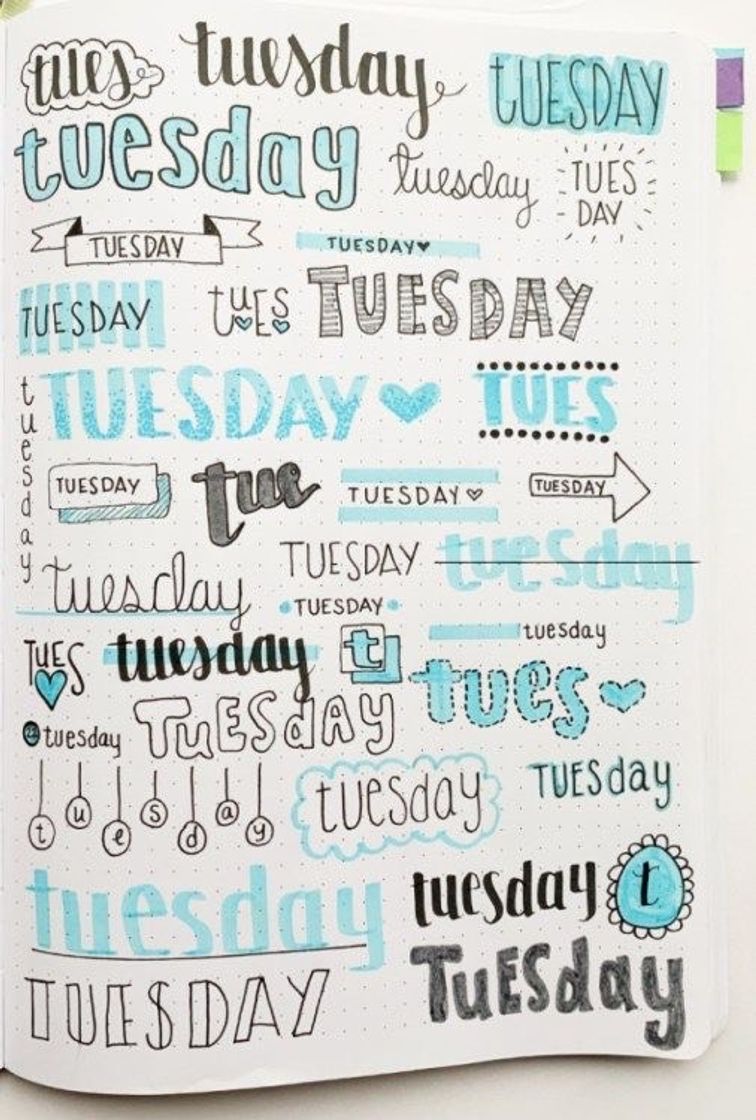 tues
tuesday
tUESDAY
tuesday
tuesday
TUES
DAY
TUESDAY
TUESDAY♥
TUESDAY
tuES
TUESDAY
tuesday
TUESDAY
TUES
TUESDAY
tue
TUESDAY♡
TUESDAY
tuesday
TUESDAY
tuesday
TUESDAY
TUES
tuesday
t
tuesday
tues
tuesday
TuESdAY
tuesday
tuesday
TUESday
tuesday
tuesday
t
TUESDAY
TuESday